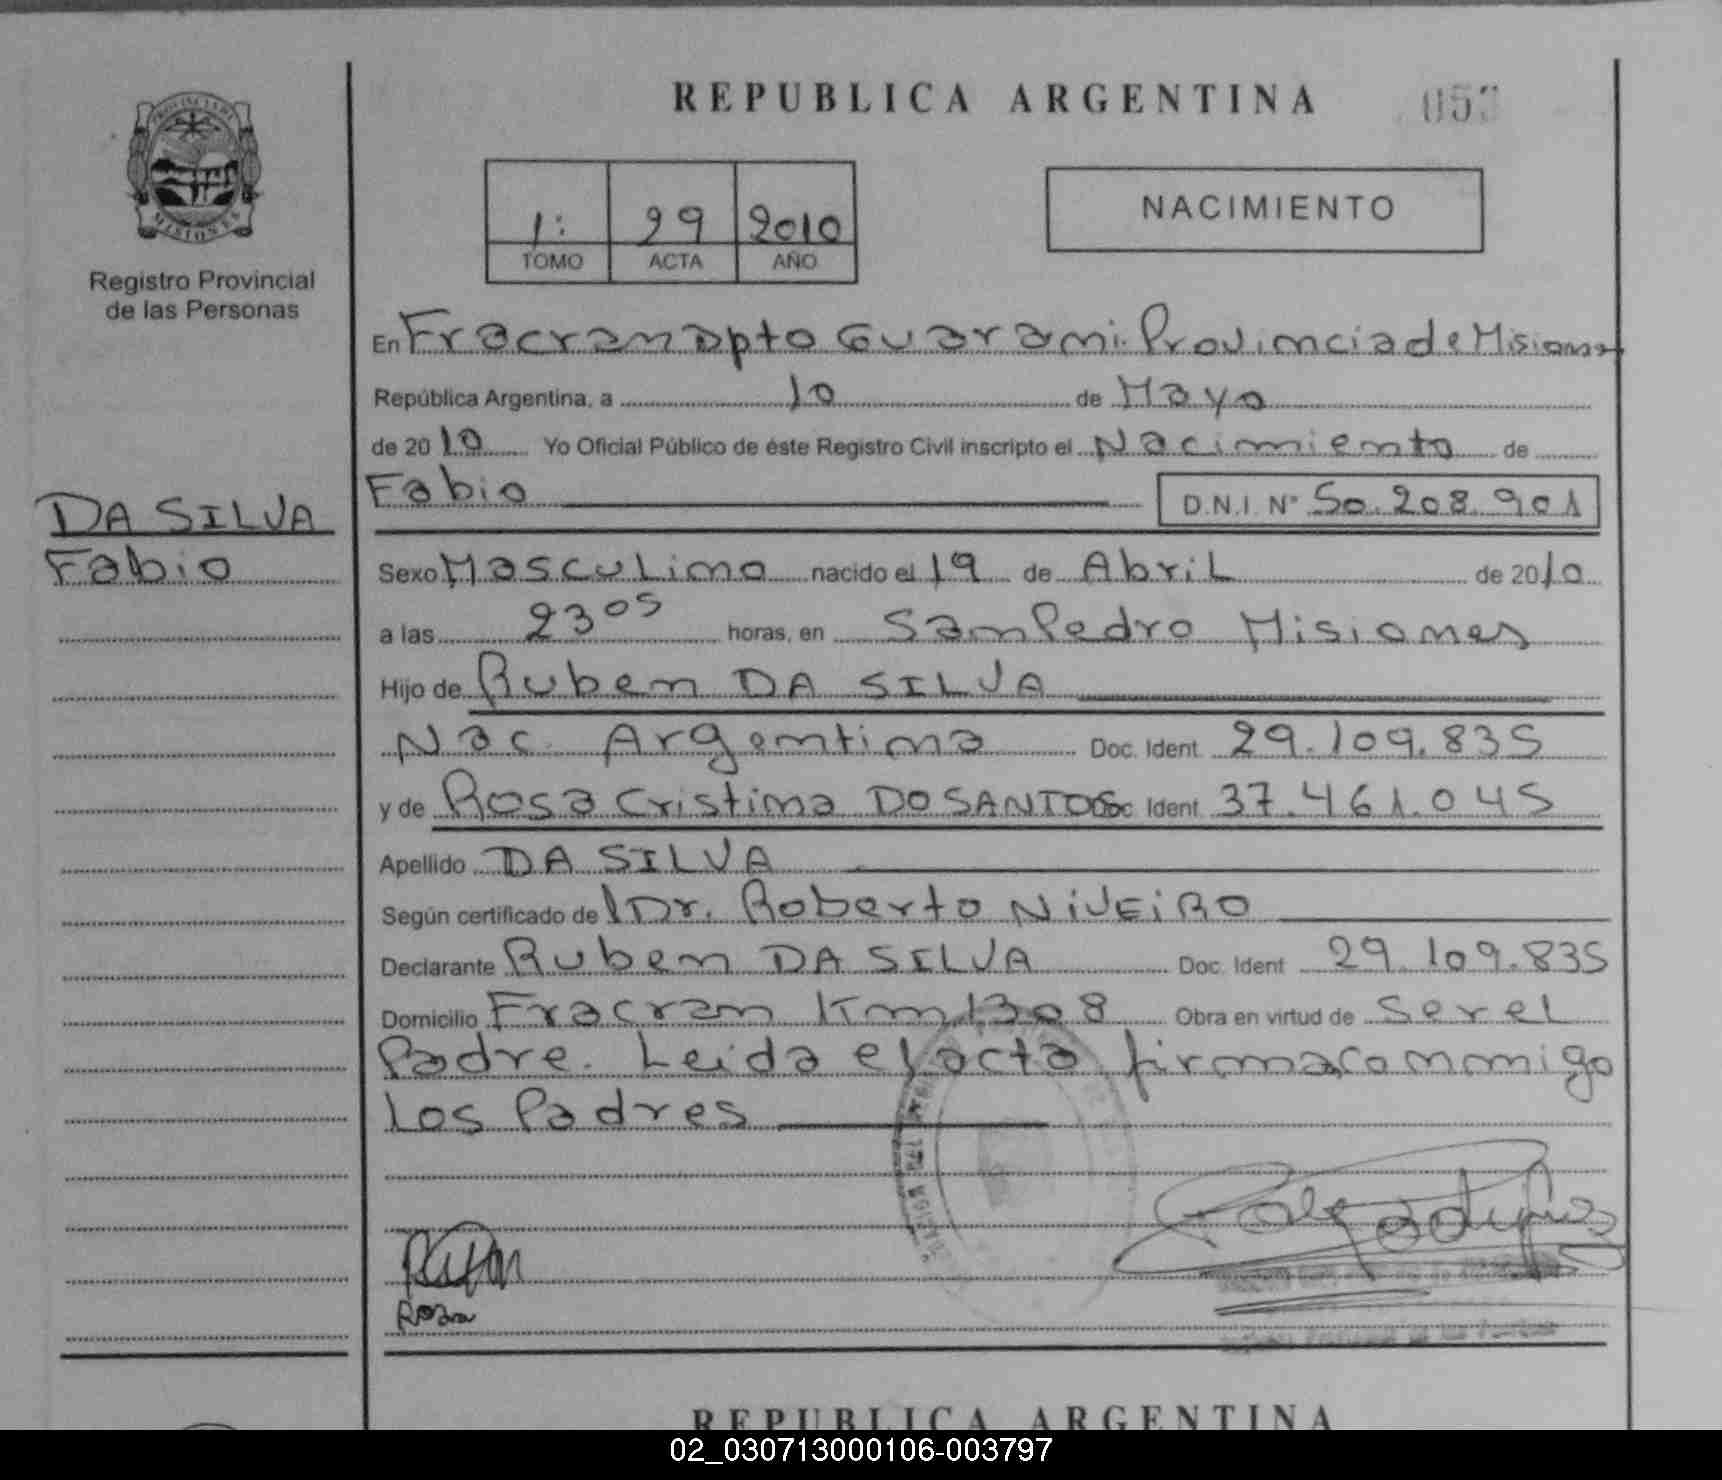 REPUBLICA ARGENTINA
PROVINCIA DE
MISIONES
Registro Provincial
de las Personas
1:
29
2010
TOMO
ACTA
AÑO
NACIMIENTO
En Fracran Dpto Guarani. Provincia de Misiones
República Argentina, a 10 de Mayo
de 2010 Yo Oficial Público de éste Registro Civil inscripto el Nacimiento de
Fabio D.N.I. Nº 50.208.901
DA SILVA
Fabio
Sexo Masculino nacido el 19 de Abril de 2010
a las 23 05 horas, en San Pedro Misiones
Hijo de Ruben DA SILVA
Nac. Argentina Doc. Ident 29.109.835
y de Rosa Cristina DOSANTOS Doc Ident 37.461.045
Apellido DA SILVA
Según certificado del Dr. Roberto NIVEIRO
Declarante Ruben DA SILVA Doc. Ident 29.109.835
Domicilio Fracran Km 1308 Obra en virtud de Ser el
Padre. Leida el acta firman conmigo
Los Padres
Rosa
REPUBLICA ARGENTINA
02_030713000106-003797